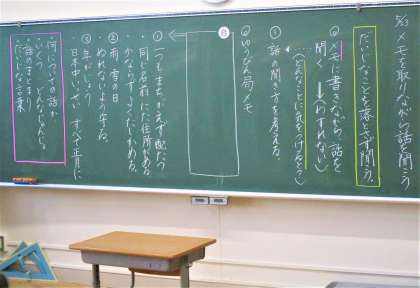 5/23 メモを取りながら話を聞こう
だいじなことを落とさず聞こう。
◎メモに書きながら、話を
聞く→(わすれない)
(どんなことに気をつけるんだろう?)
① 話の聞き方を考える。
②ゆうびん局メモ
① 一つもまちがえず配たつ
・同じ名前 にた住所がある
・かならずよくたしかめる。
② 雨、雪の日
ぬれないよう守る。
③ 年がじょう
日本中いっせい すべて正月に
何についての話か
いくつ
話のまとまり
だいじな言葉